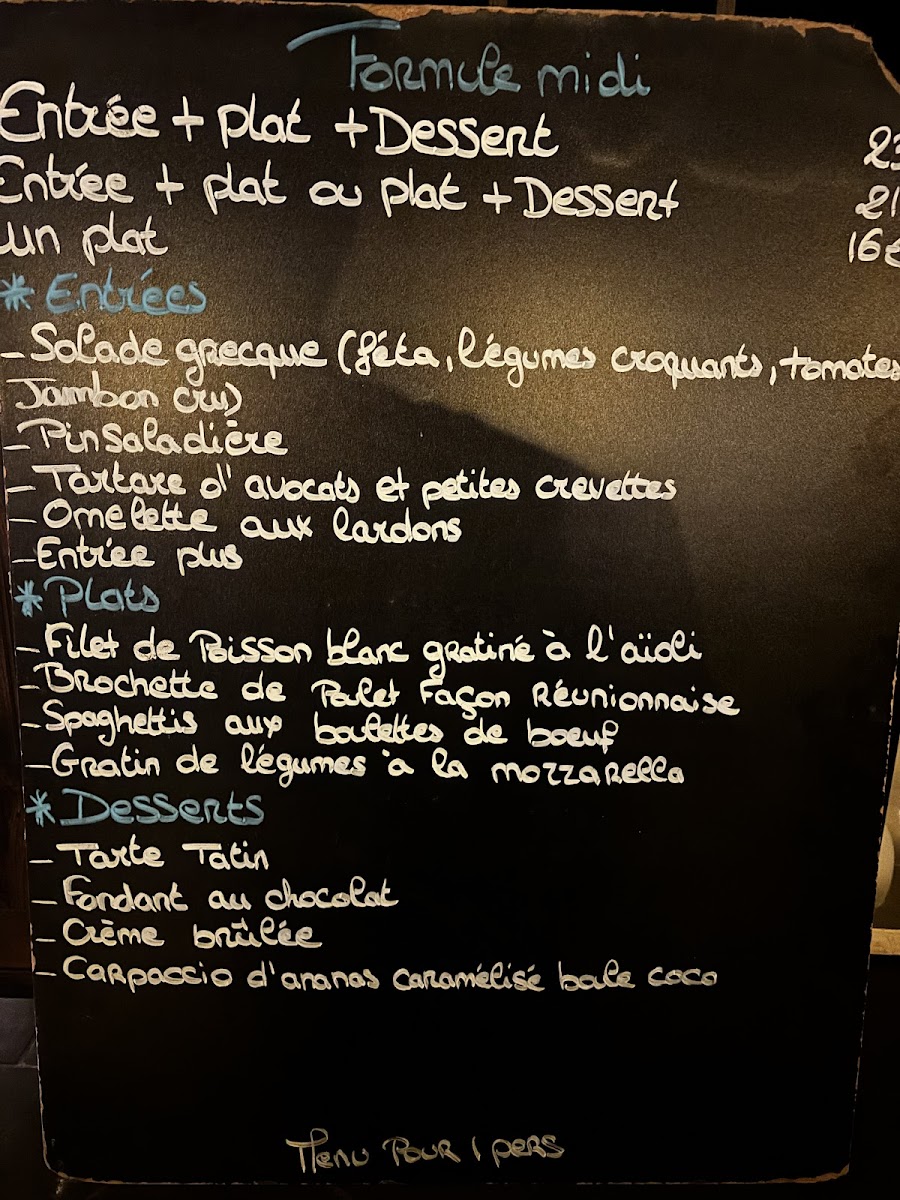 Formule midi
Entrée + plat + Dessert 23
Entrée + plat ou plat + Dessert 21
un plat 16€
* Entrées
- Salade grecque (féta, légumes croquants, tomates
Jambon cru)
- Pinsaladière
- Tartare d'avocats et petites crevettes
- Omelette aux lardons
- Entrée plus
* Plats
- Filet de Poisson blanc gratiné à l'aïoli
- Brochette de Poulet Façon Réunionnaise
- Spaghettis aux boulettes de boeuf
- Gratin de légumes à la mozzarella
* Desserts
- Tarte Tatin
- Fondant au chocolat
- Crème brûlée
- Carpaccio d'ananas caramélisé boule coco
Menu Pour 1 pers